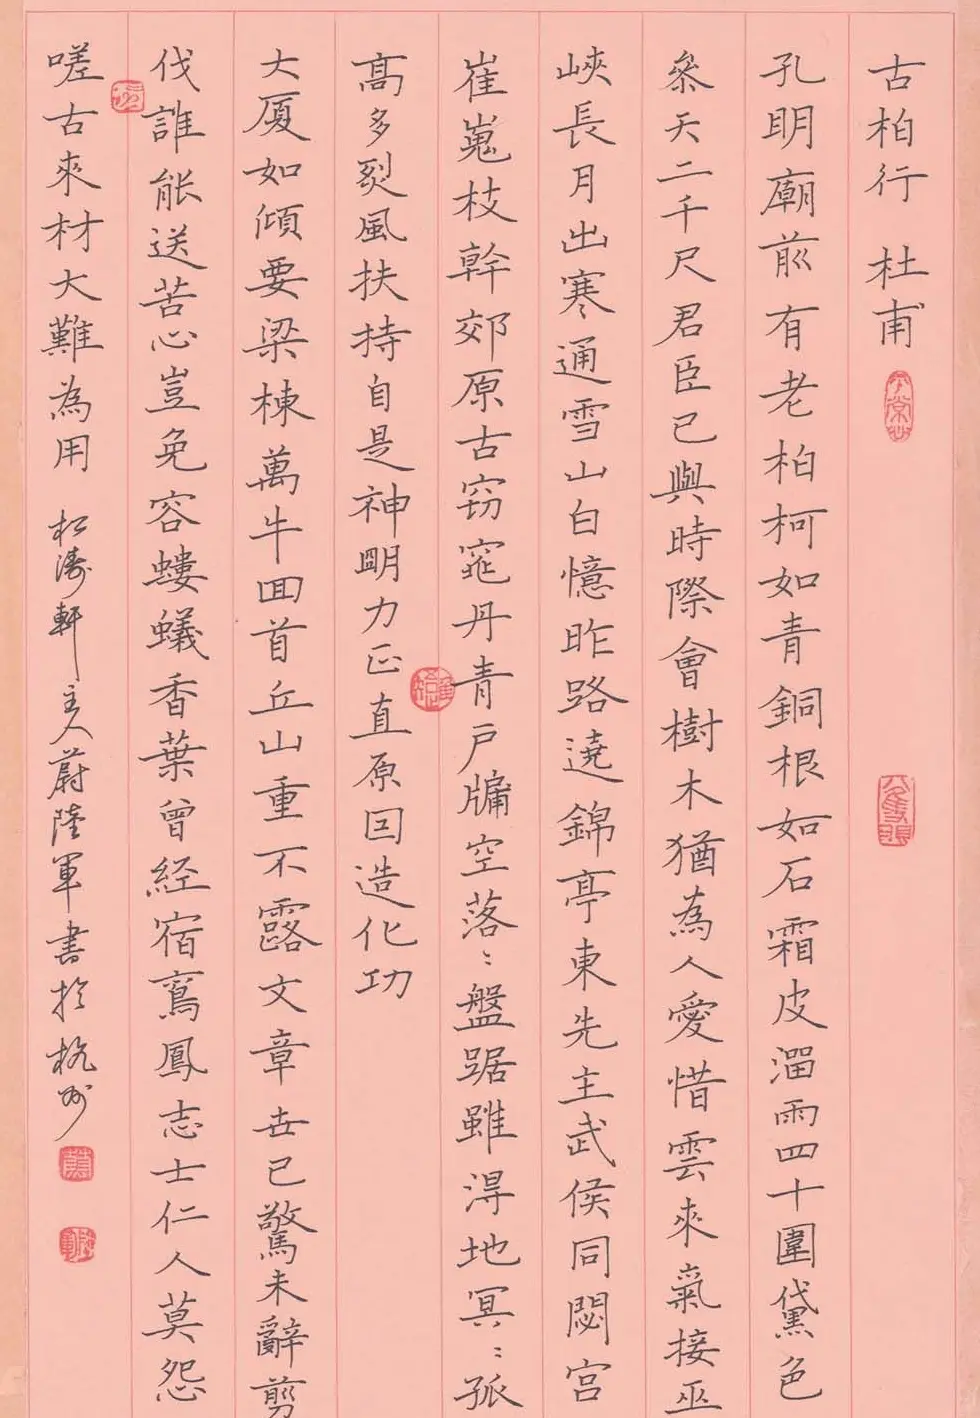 古柏行 杜甫
孔明廟前有老柏柯如青銅根如石霜皮溜雨四十圍黛色
叅天二千尺君臣已與時際會樹木猶為人愛惜雲來氣接巫
峽長月出寒通雪山白憶昨路遶錦亭東先主武侯同閟宮
崔嵬枝幹郊原古窈窕丹青戶牖空落〻盤踞雖得地冥〻孤
高多烈風扶持自是神明力正直原因造化功
大厦如傾要梁棟萬牛回首丘山重不露文章世已驚未辭剪
伐誰能送苦心豈免容螻蟻香葉曾經宿鸞鳳志士仁人莫怨
嗟古來材大難為用 松濤軒主人蔚陸軍書於杭州